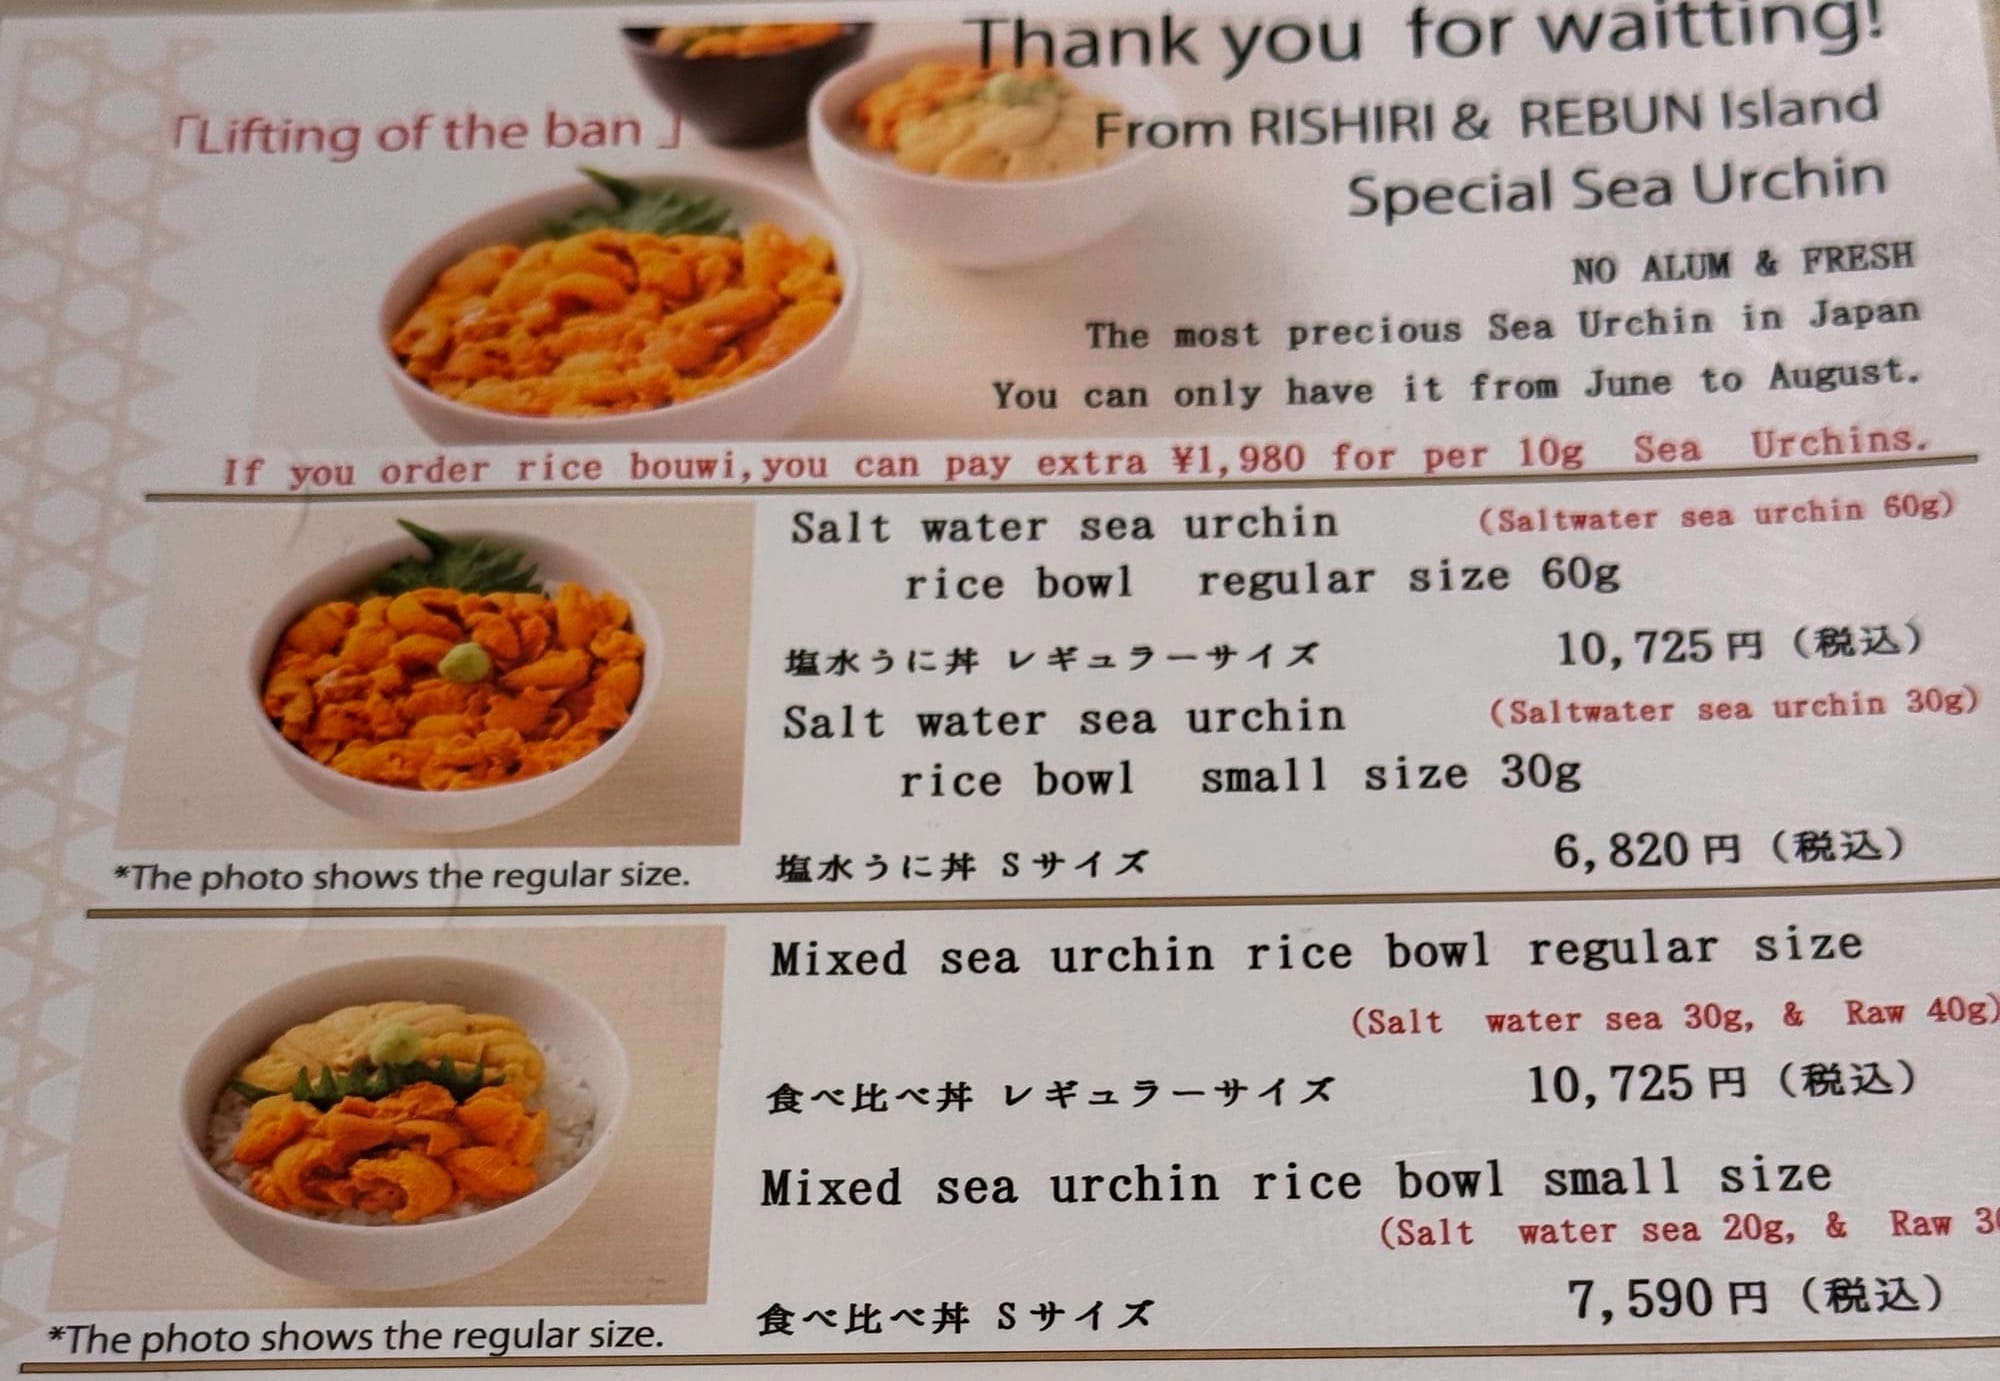 Thank you for waitting!
「Lifting of the ban 」
From RISHIRI & REBUN Island
Special Sea Urchin
NO ALUM & FRESH
The most precious Sea Urchin in Japan
You can only have it from June to August.
If you order rice bouwi, you can pay extra ¥1,980 for per 10g Sea Urchins.
Salt water sea urchin (Saltwater sea urchin 60g)
rice bowl regular size 60g
塩水うに丼 レギュラーサイズ 10,725円（税込）
Salt water sea urchin (Saltwater sea urchin 30g)
rice bowl small size 30g
塩水うに丼 Sサイズ 6,820円（税込）
*The photo shows the regular size.
Mixed sea urchin rice bowl regular size
(Salt water sea 30g, & Raw 40g)
食べ比べ丼 レギュラーサイズ 10,725円（税込）
Mixed sea urchin rice bowl small size
(Salt water sea 20g, & Raw
食べ比べ丼 Sサイズ 7,590円（税込）
*The photo shows the regular size.